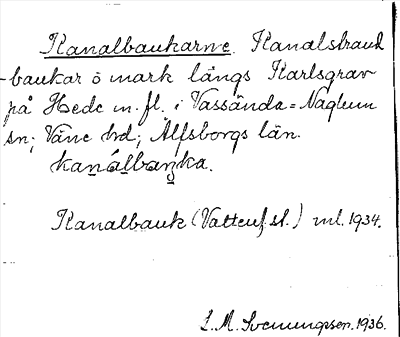 Kanalbankarne. Kanalstrand
-bankar o mark längs Karlsgrav
på Hede m.fl. i Vassända=Naglum
sn; Väne hrd; Älfsborgs län.
kanálbaŋka.
Kanalbank (Vattenf.st.) ml. 1934.
S. M. Svenungsson. 1936.